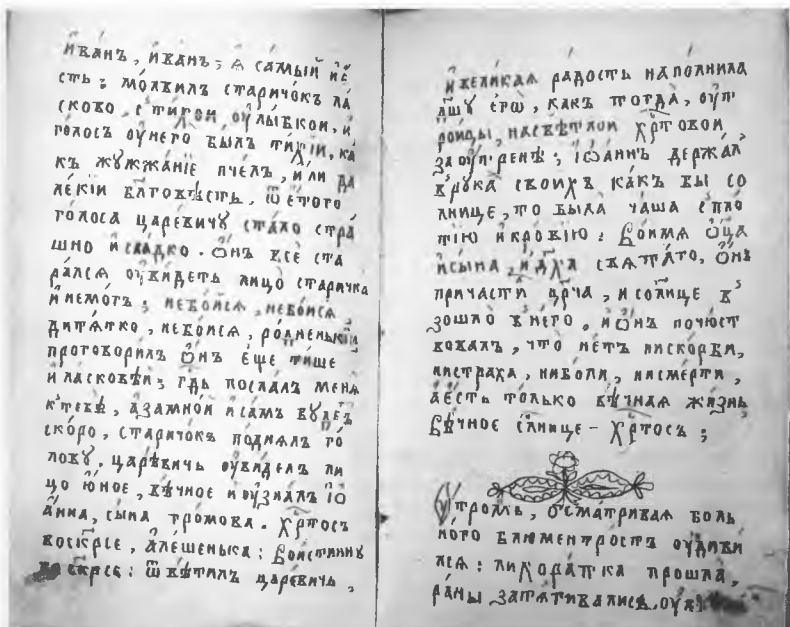 и҆ва́нъ, и҆ва́нъ; ѧ҆ са́мый и҆ е҆
сть: мо́лвилъ старичо́къ ла
сково, с ти́хои ѹ҆лы́бкои, и҆
го́лосъ ѹ҆ него̀ былъ ти́хїи, ка
къ жужжа́нїе пчелъ, и҆ли да
ле́кїи бл҃говѣсть, ѿ е҆́того
го́лоса царе́вичꙋ ста́ло стра
шно и҆ сла́дко. ѻ҆нъ всѐ ста
ра́лсѧ ѹ҆ви́деть лицо̀ старичка
и҆ немо́гъ; небо́исѧ, небо́исѧ,
дитѧ́тко, небо́исѧ, ро́дненькїи
проговори́лъ ѻ҆́нъ е҆ще ти́ше
и҆ ла́сковѣи; гд҃ь посла́лъ менѧ
к тебѣ̀, а҆ замно́й и҆ са́мъ бꙋ́детъ
ско́ро, старичо́къ по́днѧлъ го́
ловꙋ, царе́вичь ѹ҆ви́делъ ли
цо̀ ю҆́ное, вѣ́чное и҆ ѹ҆зна́лъ і҆ѡ
а́нна, сы́на гро́мова. хр҃тосъ
воскр҃се, а҆ле́шенька: вои́стиннꙋ
воскр҃се: ѿвѣ́тилъ царе́вичь,
и҆ вели́каѧ ра́дость напо́лнила
дш҃ꙋ е҆гѡ̀, ка́къ тогда̀, ѹ҆ тр
ои́цы, на свѣ́тлои хр҃товои
заѹ҆́трене: і҆ѡа́ннъ держа́л
в рꙋка́ свои́хъ ка́къ бы со
лнце, то была̀ ча́ша с пло́
тїю и҆ кро́вїю: Во и҆́мѧ ѻ҆ц҃а
и҆ сы́на, и҆ дх҃а свѧта́го, ѻ҆нъ
причасти́ цр҃ча, и со́лнце в
зошло̀ в него̀, и҆ ѻ҆́нъ почю́ст
вовалъ, что не́тъ ни ско́рби,
ни стра́ха, ни бо́ли, ни сме́рти,
а е҆́сть то́лько вѣ́чнаѧ жи́знь
Вѣ́чное со́лнце – хр҃тосъ;
Ꙋ҆́тромъ, ѻ҆сма́триваѧ боль
но́го блюментро́стъ ѹ҆диви́
лсѧ: лихора́тка прошла̀,
ра́ны затѧ́гивалисѧ,